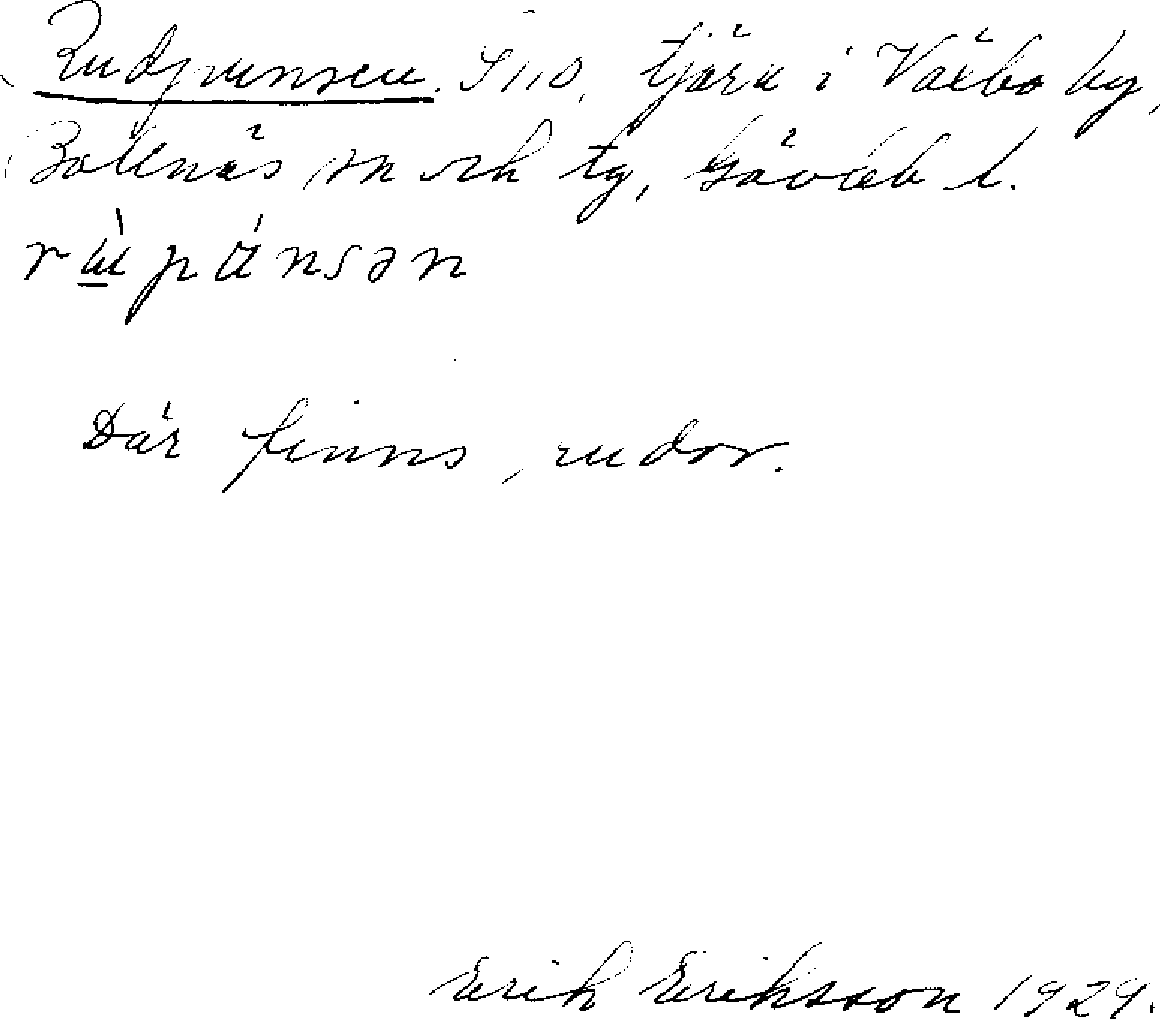 Rudpunsen. tjärn i Växbo by,
Bollnäs sn och tg, Gävleb l.
Där finns rudor.
Erik Eriksson 1929.